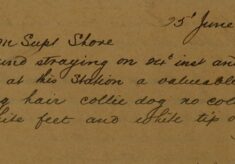 25' June
m Supt Shore
und straying on 24' inst an
at this Station a valuable
g hair collie dog no col
ite feet and white tip o